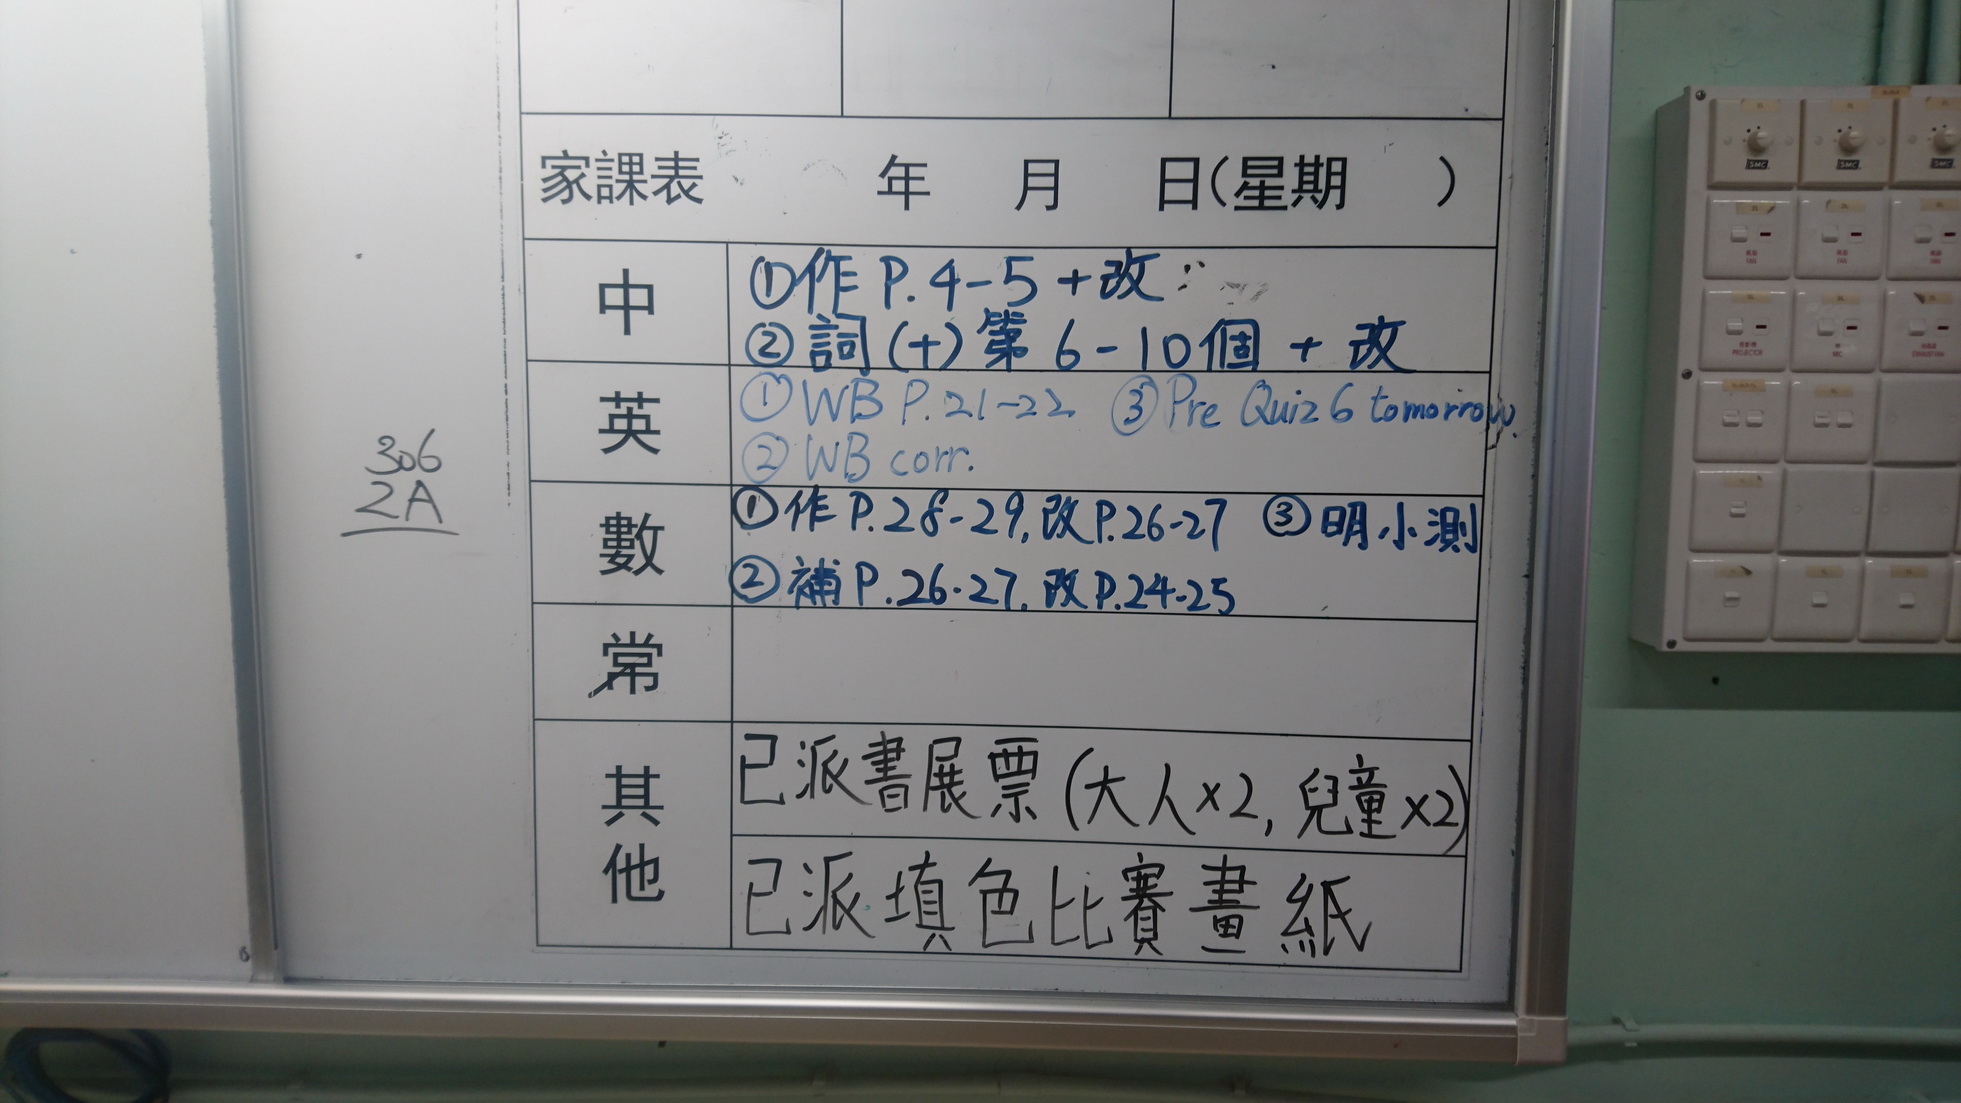 家課表 年 月 日(星期 )
中
①作 P.4-5 +改
②詞(十)第6-10個 + 改
英
①WB P.21-22 ③Pre Quiz 6 tomorrow
②WB corr.
數
①作P.28-29,改P.26-27 ③明小測
②補P.26-27,改P.24-25
常
其他
已派書展票(大人×2,兒童×2)
已派填色比賽畫紙
306
2A
SMC
SMC
SMC